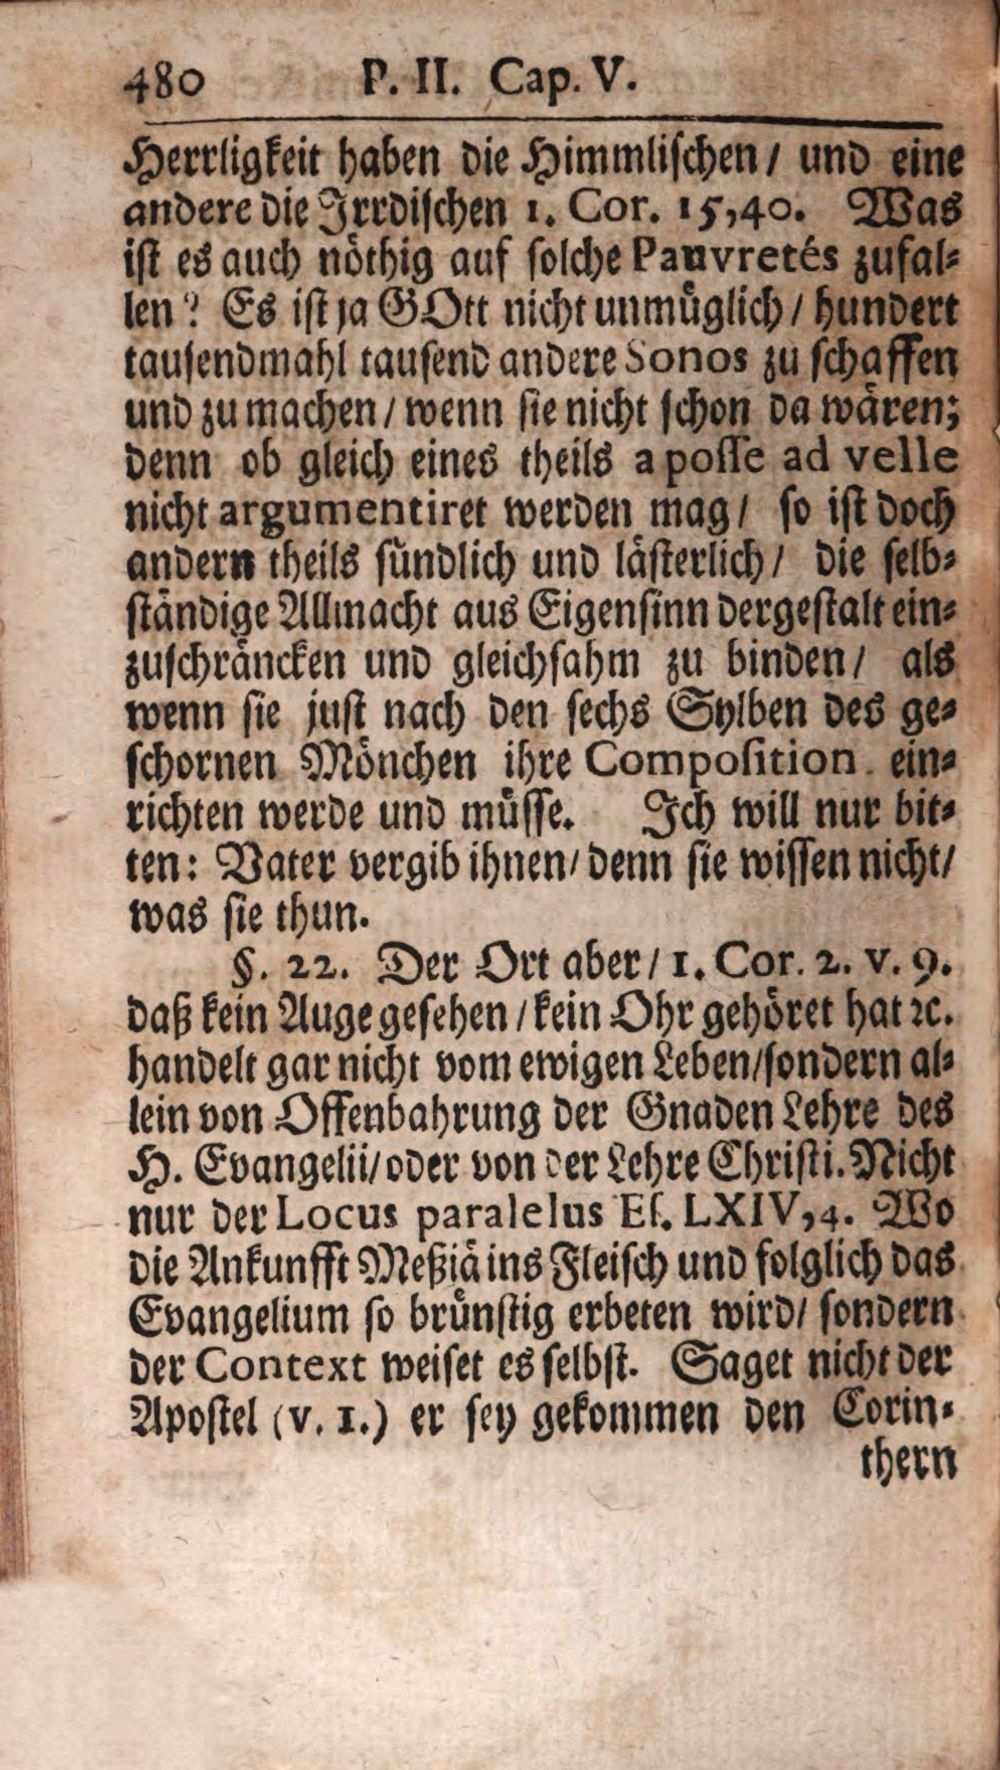 480 P. II. Cap. V.
Herrligkeit haben die Himmlischen / und eine
andere die Irrdischen 1. Cor. 15,40. Was
ist es auch nöthig auf solche Pauvretés zufal-
len? Es ist ja GOtt nicht unmüglich / hundert
tausendmahl tausend andere Sonos zu schaffen
und zu machen / wenn sie nicht schon da wären;
denn ob gleich eines theils a posse ad velle
nicht argumentiret werden mag / so ist doch
andern theils sündlich und lästerlich / die selb-
ständige Allmacht aus Eigensinn dergestalt ein-
zuschräncken und gleichsahm zu binden / als
wenn sie just nach den sechs Sylben des ge-
schornen Mönchen ihre Composition ein-
richten werde und müsse. Ich will nur bit-
ten: Vater vergib ihnen / denn sie wissen nicht /
was sie thun.
§. 22. Der Ort aber / 1. Cor. 2. v. 9.
daß kein Auge gesehen / kein Ohr gehöret hat ꝛc.
handelt gar nicht vom ewigen Leben / sondern al-
lein von Offenbahrung der Gnaden Lehre des
H. Evangelii / oder von der Lehre Christi. Nicht
nur der Locus paralelus Es. LXIV, 4. Wo
die Ankunfft Meßiä ins Fleisch und folglich das
Evangelium so brünstig erbeten wird / sondern
der Context weiset es selbst. Saget nicht der
Apostel (v. 1.) er sey gekommen den Corin-
thern